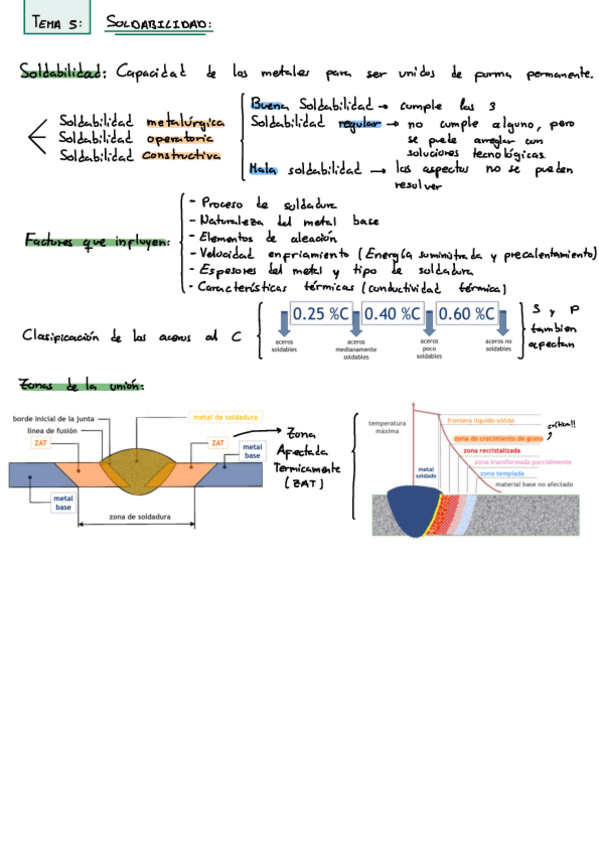 TEMA 5: SOLDABILIDAD:
Soldabilidad: Capacidad de los metales para ser unidos de forma permanente.
Soldabilidad metalúrgica
Soldabilidad operatoria
Soldabilidad constructiva
Buena Soldabilidad → cumple las 3
Soldabilidad regular → no cumple alguno, pero
se puede arreglar con
soluciones tecnológicas
Mala soldabilidad → los aspectos no se pueden
resolver
Factores que influyen:
- Proceso de soldadura
- Naturaleza del metal base
- Elementos de aleación
- Velocidad enfriamiento (Energía suministrada y precalentamiento)
- Espesores del metal y tipo de soldadura
- Características térmicas (conductividad térmica)
Clasificación de los aceros al C
0.25 %C 0.40 %C 0.60 %C
aceros
soldables
aceros
medianamente
soldables
aceros
poco
soldables
aceros no
soldables
S y P
tambien
afectan
Zonas de la unión:
borde inicial de la junta
línea de fusión
ZAT
metal de soldadura
ZAT
metal
base
metal
base
zona de soldadura
Zona
Afectada
Termicamente
(ZAT)
temperatura
máxima
frontera líquido-sólido
zona de crecimiento de grano
zona recristalizada
zona transformada parcialmente
zona templada
material base no afectado
metal
soldado